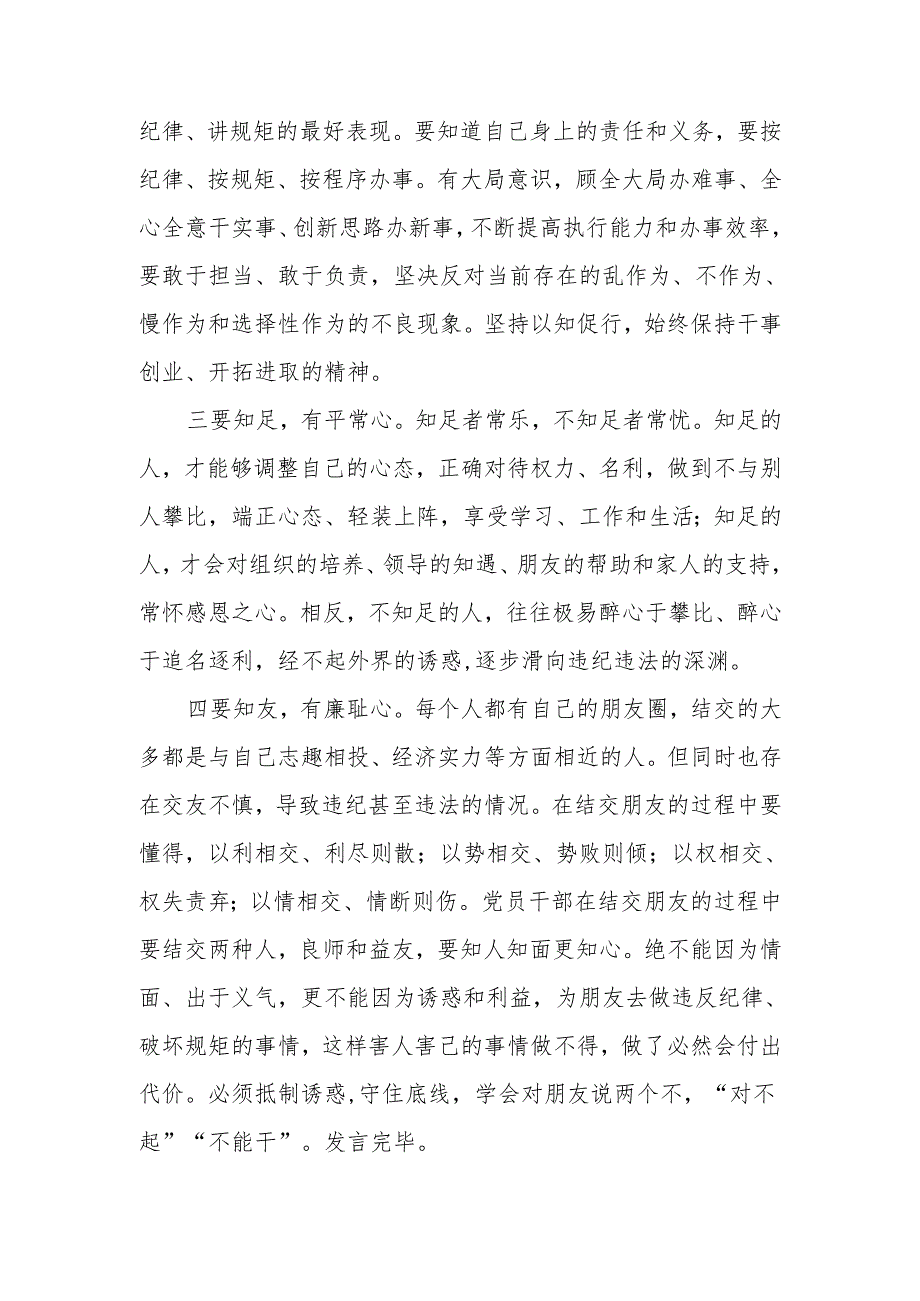 纪律、讲规矩的最好表现。要知道自己身上的责任和义务，要按
纪律、按规矩、按程序办事。有大局意识，顾全大局办难事、全
心全意干实事、创新思路办新事，不断提高执行能力和办事效率，
要敢于担当、敢于负责，坚决反对当前存在的乱作为、不作为、
慢作为和选择性作为的不良现象。坚持以知促行，始终保持干事
创业、开拓进取的精神。
三要知足，有平常心。知足者常乐，不知足者常忧。知足的
人，才能够调整自己的心态，正确对待权力、名利，做到不与别
人攀比，端正心态、轻装上阵，享受学习、工作和生活；知足的
人，才会对组织的培养、领导的知遇、朋友的帮助和家人的支持，
常怀感恩之心。相反，不知足的人，往往极易醉心于攀比、醉心
于追名逐利，经不起外界的诱惑,逐步滑向违纪违法的深渊。
四要知友，有廉耻心。每个人都有自己的朋友圈，结交的大
多都是与自己志趣相投、经济实力等方面相近的人。但同时也存
在交友不慎，导致违纪甚至违法的情况。在结交朋友的过程中要
懂得，以利相交、利尽则散；以势相交、势败则倾；以权相交、
权失责弃；以情相交、情断则伤。党员干部在结交朋友的过程中
要结交两种人，良师和益友，要知人知面更知心。绝不能因为情
面、出于义气，更不能因为诱惑和利益，为朋友去做违反纪律、
破坏规矩的事情，这样害人害己的事情做不得，做了必然会付出
代价。必须抵制诱惑,守住底线，学会对朋友说两个不，“对不
起”“不能干”。发言完毕。